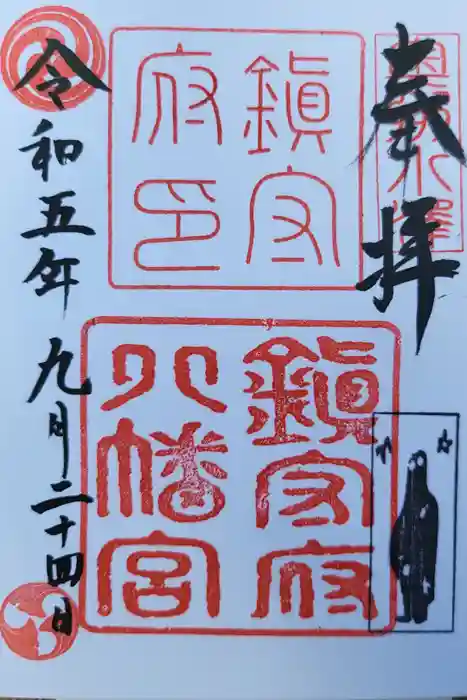 奉拝
奥州水澤
鎮守
府印
鎮守府
八幡宮
令和五年九月二十四日